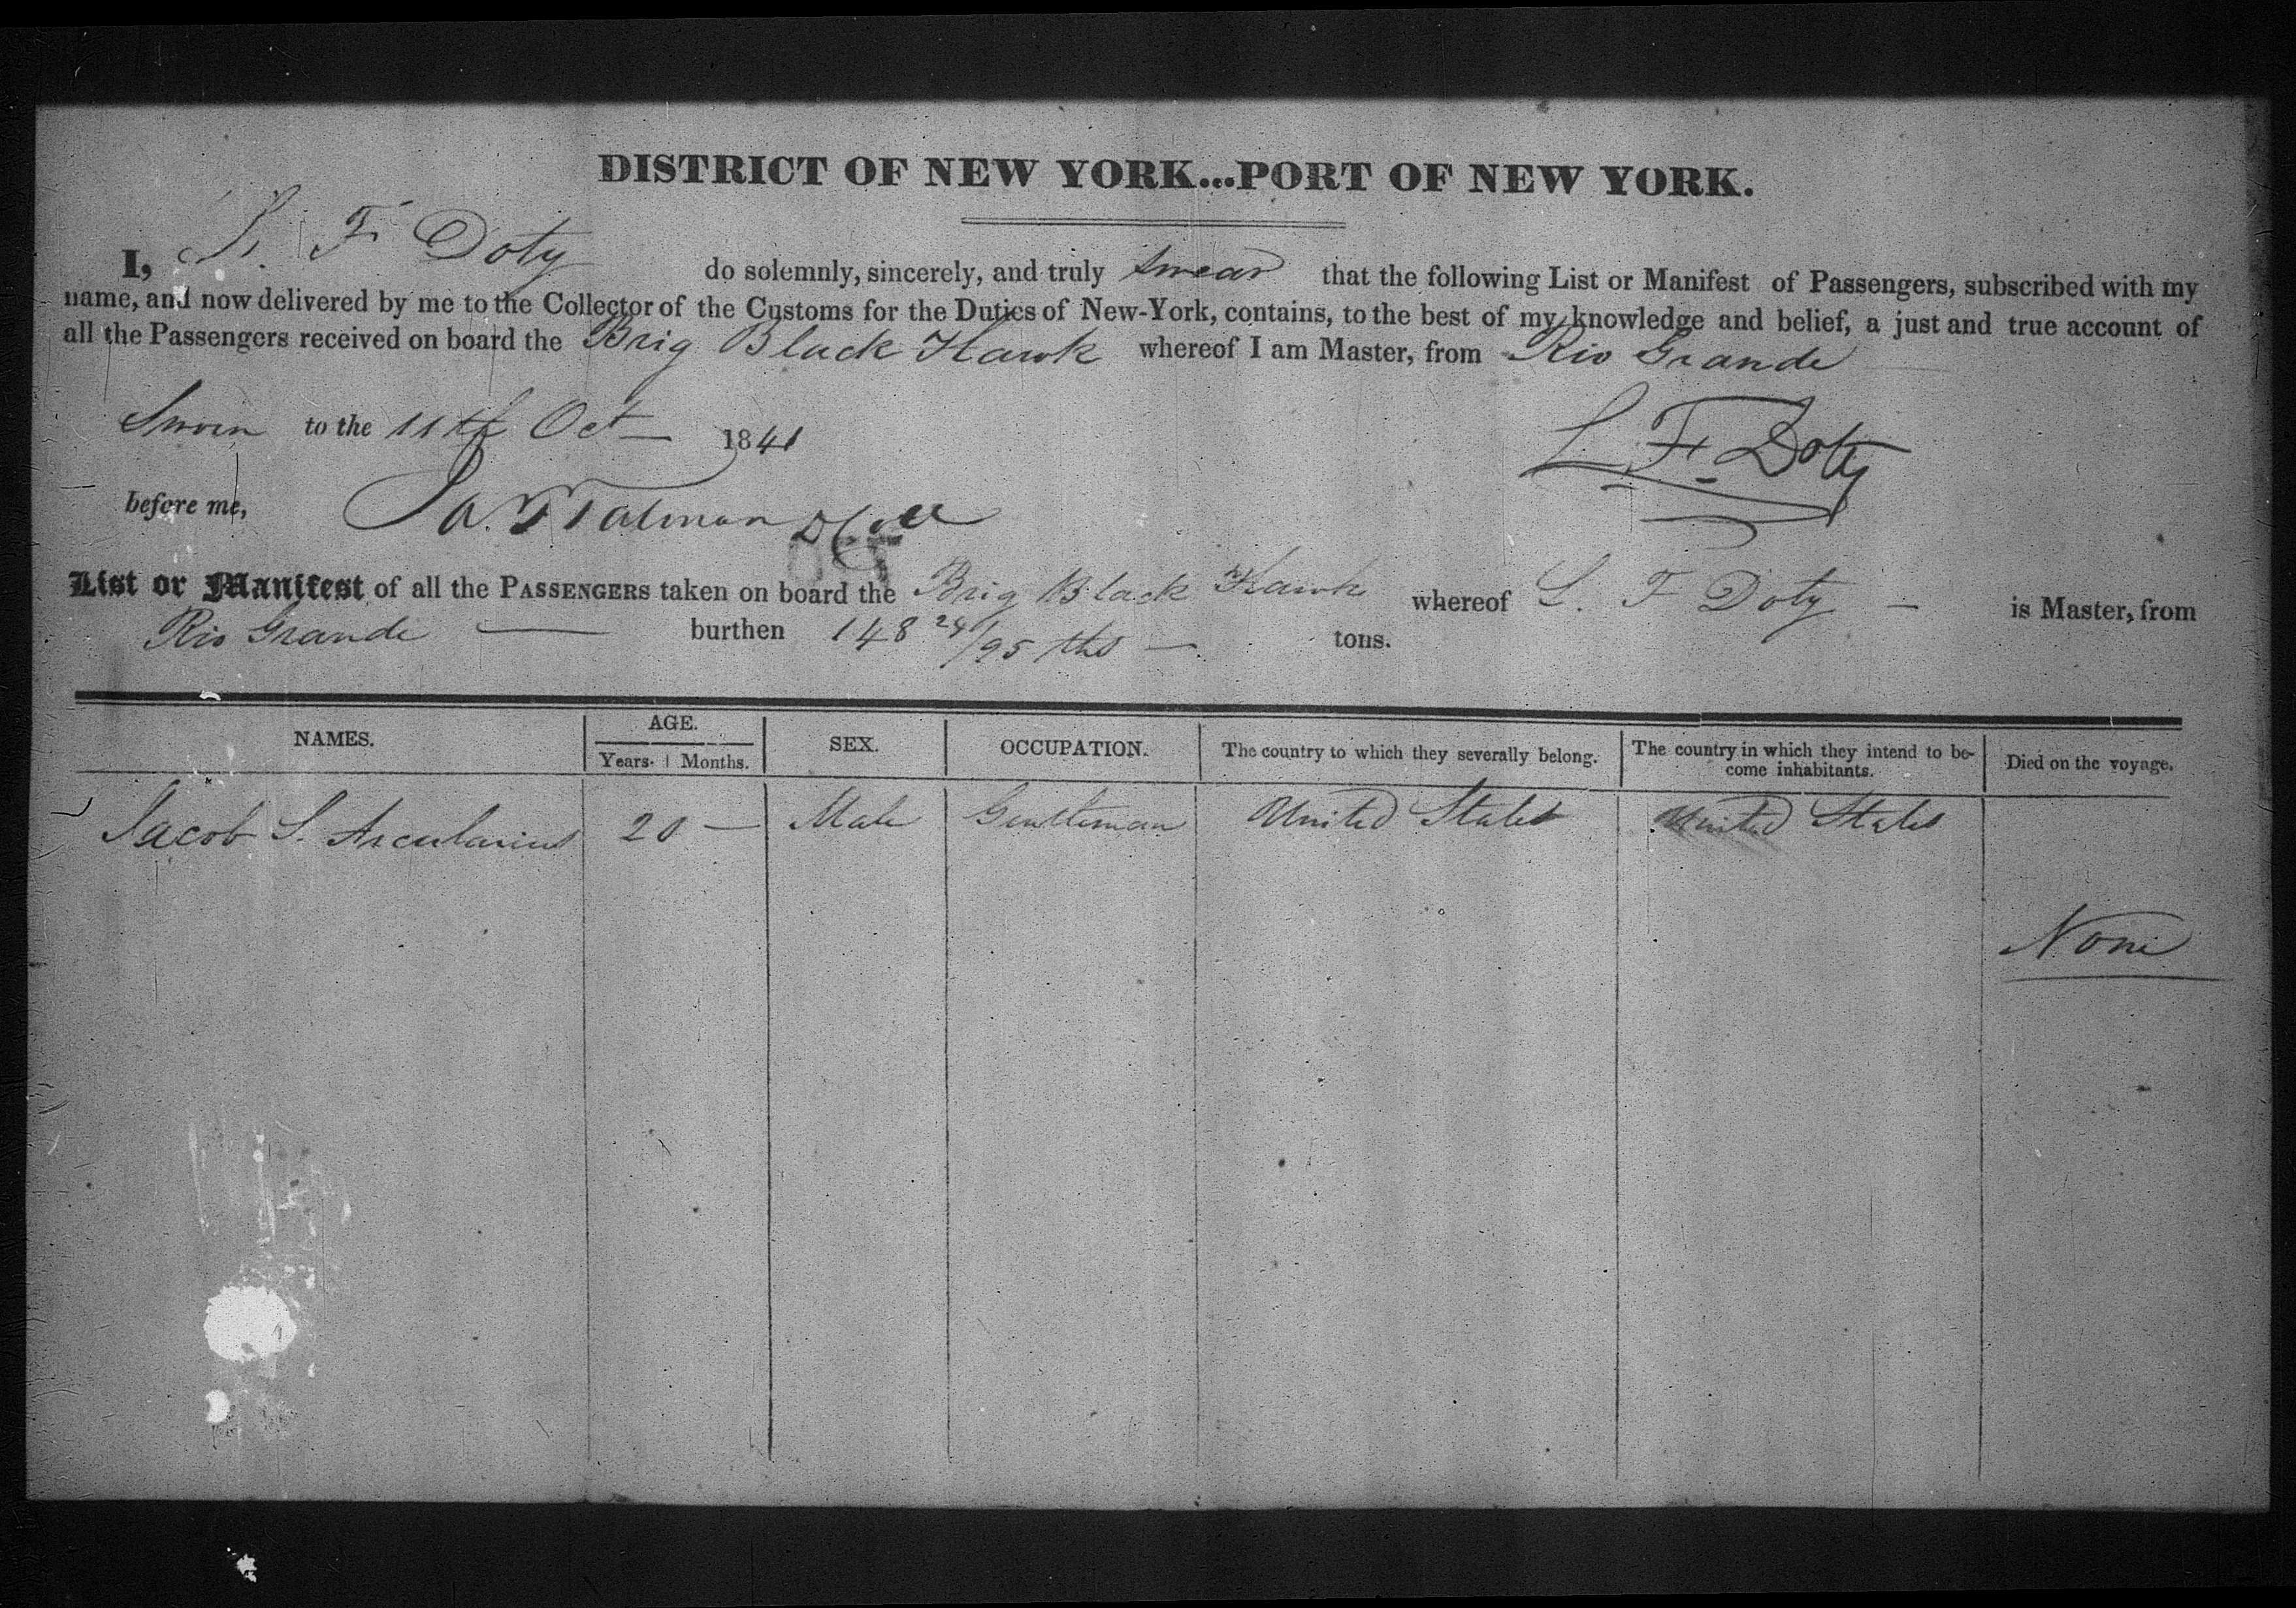 DISTRICT OF NEW YORK...PORT OF NEW YORK.
I, L. F Doty do solemnly, sincerely, and truly swear that the following List or Manifest of Passengers, subscribed with my
name, and now delivered by me to the Collector of the Customs for the Duties of New-York, contains, to the best of my knowledge and belief, a just and true account of
all the Passengers received on board the Brig Black Hawk whereof I am Master, from Rio Grande
Sworn to the 11th Oct 1841
L F Doty
before me,
Talman
OCT
List or Manifest of all the PASSENGERS taken on board the Brig Black Hawk whereof L. F Doty — is Master, from
Rio Grande — burthen 148 24/95 ths — tons.
NAMES. AGE. SEX. OCCUPATION. The country to which they severally belong. The country in which they intend to be-
come inhabitants. Died on the voyage.
Years. Months.
Jacob S. Arcularius 20 — Male Gentleman United States United States
None